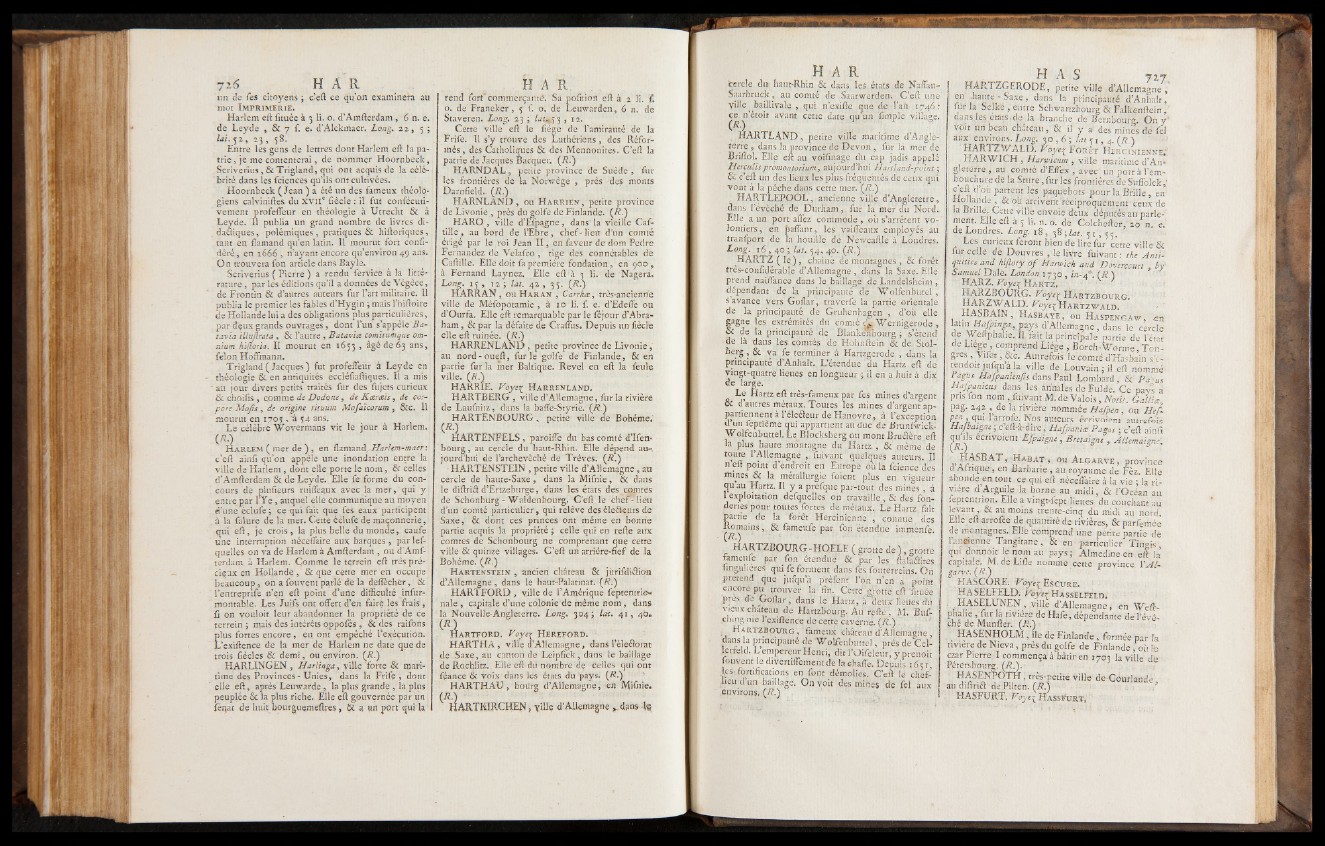 726 H A R
un de ses citoyens ; c'est ce qu'on examinera au
mot IMPRIMERIE.
Harlem est située à 3 li. o. d'Amsterdam, 6 n. e.
de Leyde , & 7 s. e. d'Alckmaer. Long. 22 , 5 ;
lat. 52 , 23 , 58.
Entre les gens de lettres dont Harlem est la pa-
trie, je me contenterai, de nommer Hoornbeck,
Scriverius, & Trigland, qui ont acquis de la célé-
brité dans les sciences qu'ils ont cultivées.
Hoornbeck ( Jean ) a été un des fameux théolo-
giens calvinistes du XVIIe siècle : il fut consécuti-
vement professeur en théologie à Utrecht & à
Leyde. Il publia un grand nombre de livres di-
dactiques, polémiques , pratiques & historiques,
tant en flamand qu'en latin. Il mourut fort consi-
déré, en 1666 , n'ayant encore qu'environ 49 ans.
On trouvera son article dans Bayle.
Scriverius ( Pierre ) a rendu service à la litté-
rature , par les éditions qu'il a données de Végéce,
de Frontin & d'autres auteurs sur l'art militaire. Il
publia le premier les fables d'Hygin ; mais l'histoire
de Hollande lui a des obligations plus particulières,
par deux grands ouvrages , dont l'un s'appelle Ba-
tavia illustrata, & l'autre, Bataviæ comitumque om-
nium historia. Il mourut en 1653 , âgé de 63 ans,
selon Hoffmann.
Trigland ( Jacques ) fut professeur à Leyde en
théologie & en antiquités ecclésiastiques. Il a mis
au jour divers petits traités sur des sujets curieux
& choisis , comme de Dodone, de Karæis, de cor-
pore Mosis, de origine rituum Mosaicorum , &c. Il
mourut en 1705 , à 54 ans.
Le célèbre Wovermans vit le jour à Harlem.
(R.)
HARLEM ( mer de ), en flamand Harlem-maer :
c'est ainsi qu'on appèle une inondation entre la
ville de Harlem, dont elle porte le nom, & celles
d'Amsterdam & de Leyde. Elle se forme du con-
cours de plusieurs ruisseaux avec la mer, qui y
entre par l'Ye , auquel elle communique au moyen
d'une écluse; ce qui fait que ses eaux participent
à la salure de la mer. Cette écluse de maçonnerie,
qui est, je crois, la plus belle du monde, cause
une interruption nécessaire aux barques , par les-
quelles on va de Harlem à Amsterdam , ou d'Ams-
terdam à Harlem. Comme le terrein est très pré-
cieux en Hollande , & que cette mer en occupe
beaucoup, on a souvent parlé de la dessécher, &
l'entreprise n'en est point d'une difficulté insur-
montable. Les Juifs ont offert d'en faire les frais,
si on vouloit leur abandonner la propriété de ce
terrein ; mais des intérêts opposés , & des raisons
plus fortes encore, en ont empêché l'exécution.
L'existence de la mer de Harlem ne date que de
trois siècles & demi, ou environ. (R.)
HARLINGEN, Harlinga, ville forte & mari-
time des Provinces - Unies, dans la Frise , dont
elle est, après Leuwarde, la plus grande , la plus
peuplée & la plus riche. Elle est gouvernée par un
sénat de huit bourguemestres , & a un port qui la
H A R
rend fort commerçante. Sa position est à 2 li. s.
o. de Franeker , 5 s. o. de Leuwarden, 6 n. de
Staveren. Long. 23 ; lat. 53 , 12.
Cette ville est le siège de l'amirauté de la
Frise. Il s'y trouve des Luthériens , des Réfor-
més, des Catholiques & des Mennonites. C'est la
patrie de Jacques Bacquer. (R.)
HARNDAL, petite province de Suède , sur
les frontières de la Norwége , près des monts
Darnfield. (R.)
HARNLAND, ou HARRIEN, petite province
de Livonie, près du golfe de Finlande. (R.)
HARO , ville d'Espagne, dans la vieille Cas-
tille , au bord de l'Ebre, chef-lieu d'un comté
érigé par le roi Jean II, en faveur de dom Pedre
Fernandez de Velasco, tige des connétables de
Castille. Elle doit sa première fondation, en 900 ,
à Fernand Laynez. Elle est à 3 li. de Nagera.
Long. 15 , 12 ; lat. 42 , 35. (R.)
HARRAN, ou HARAN , Carrhæ, très-ancienne
ville de Mésopotamie , à 10 li. s. e. d'Edesse ou
d'Ourfa. Elle est remarquable par le séjour d'Abra-
ham, & par la défaite de Crassus. Depuis un siècle
elle est ruinée. (R.)
HARRENLAND , petite province de Livonie,
au nord-ouest, sur le golfe de Finlande, & en
partie sur la mer Baltique. Revel en est la seule
ville. (R.)
HARRIE. Voyez HARRENLAND.
HARTBERG , ville d'Allemagne, sur la rivière
de Laufnitz, dans la basse-Styrie. (R.)
HARTENBOURG , petite ville de Bohême.
(R.)
HARTENFELS, paroisse du bas comté d'Isen-
bourg , au cercle du haut-Rhin. Elle dépend au-
jourd'hui de l'archevêché de Trèves. (R.)
HARTENSTEIN , petite ville d'Allemagne , au
cercle de haute-Saxe , dans la Misnie, & dans
le district d'Ertzeburge, dans les états des comtes
de Schonburg - Woldenbourg. C'est le chef-lieu
d'un comté particulier, qui relève des électeurs de
Saxe, & dont ces princes ont même en bonne
partie acquis la propriété ; celle qui en reste aux
comtes de Schonbourg ne comprenant que cette
ville & quinze villages. C'est un arrière-fief de la
Bohême. (R.)
HARTENSTEIN , ancien château & jurisdiction
d'Allemagne , dans le haut-Palatinat. (R.)
HARTFORD , ville de l'Amérique septentrio-
nale, capitale d'une colonie de même nom, dans
la Nouvelle Angleterre. Long. 304 ; lat. 41 , 40.
(R.)
HARTFORD. Voyez HEREFORD.
HARTHA , ville d'Allemagne, dans l'électorat
de Saxe, au canton de Leipsick, dans le bailliage
de Rochlitz. Elle est du nombre de celles qui ont
séance & voix dans les états du pays. (R.)
HARTHAU, bourg d'Allemagne, en Misnie.
(R.)
HARTKIRCHEN, ville d'Allemagne, dans le
H A R
cercle du haut-Rhin & dans les états de Nassau-
Saarbruck, au comté de Saarwerden. C'est une
ville baillivale , qui n'existe que de l'an 1746 :
ce n'étoit avant cette date qu'un simple village.
(R.)
HARTLAND, petite ville maritime d'Angle-
terre, dans la province de Devon, sur la mer de
Bristol. Elle est au voisinage du cap jadis appelé
Herculis promontorium, aujourd'hui Hartland-point ;
& c'est un des lieux les plus fréquentés de ceux qui
vont à la pêche dans cette mer. (R.)
HARTLEPOOL, ancienne ville d'Angleterre,
dans l'évêché de Durham, sur la mer du Nord.
Elle a un port assez commode , où s'arrêtent vo-
lontiers, en passant, les vaisseaux employés au
transport de la houille de Newcastle à Londres.
Long. 16 , 40 ; lat. 54 , 40. (R.)
HARTZ ( le ), chaîne de montagnes , & forêt
très-considérable d'Allemagne , dans la Saxe. Elle
prend naissance dans le bailliage de Landelsheim ,
dépendant de la principauté de Wolfenbuttel ,
s'avance vers Goslar, traverse la partie orientale
de la principauté de Grubenhagen , d'où elle
gagne les extrémités du comté de Wernigerode ,
& de la principauté de Blankenbourg ; s'étend
de là dans les comtés de Hohnstein & de Stol-
berg, & va se terminer à Hartzgerode , dans la
principauté d'Anhalt. L'étendue du Hartz est de
vingt-quatre lieues en longueur ; il en a huit à dix
de large.
Le Hartz est très-fameux par ses mines d'argent
& d'autres métaux. Toutes les mines d'argent ap-
partiennent à l'électeur de Hanovre, à l'exception
d'un septième qui appartient au duc de Brunswick-
Wolfenbuttel. Le Blocksberg ou mont Bructère est
la plus haute montagne du Hartz , & même de
toute l'Allemagne , suivant quelques auteurs. Il
n'est point d'endroit en Europe où la science des
mines & la métallurgie soient plus en vigueur
qu'au Hartz. Il y a presque par-tout des mines , à
l'exploitation desquelles on travaille, & des fon-
deries pour toutes sortes de métaux. Le Hartz fait
partie de la forêt Hercinienne , connue des
Romains, & fameuse par son étendue immense.
(R.)
HARTZBOURG-HOELE ( grotte de ), grotte
fameuse par son étendue & par les stalactites
singulières qui se forment dans ses souterreins. On
prétend que jusqu'à présent l'on n'en a point
encore pu trouver la fin. Cette grotte est située
près de Goslar, dans le Hartz, à deux lieues du
vieux château de Hartzbourg. Au reste , M. Bus-
ching nie l'existence de cette caverne. (R.)
HARTZBOURG, fameux château d'Allemagne,
dans la principauté de Wolfenbuttel, près de Cel-
lerfeld. L'empereur Henri, dit l'Oiseleur, y prenoit
souvent le divertissement de la chasse. Depuis 1651,
les fortifications en sont démolies. C'est le chef-
lieu d'un bailliage. On voit des mines de sel aux
environs. (R.)
H A S 727
HARTZGERODE, petite ville d'Allemagne,
en haute - Saxe, dans la principauté d'Anhalt,
sur la Selke, entre Schwartzbourg & Falkenstein,
dans les états de la branche de Bernbourg. On y
voit un beau château, & il y a des mines de sel
aux environs. Long. 30 , 6 ; lat. 51 , 4. (R.)
HARTZWALD. Voyez FORÊT HERCINIENNE.
HARWICH, Harwicum , ville maritime d'An-
gleterre , au comté d'Essex , avec un port à l'em-
bouchure de la Sture, sur les frontières de Suffolck,
c'est d'où partent les paquebots pour la Brille , en
Hollande , & où arrivent réciproquement ceux de
la Brille. Cette ville envoie deux députés au parle-
ment. Elle est à 5 li. n. o. de Colchester, 20 n. e.
de Londres. Long. 18 , 38 ; lat. 51 , 55.
Les curieux seront bien de lire sur cette ville &
sur celle de Douvres , le livre suivant : the Anti-
quities and history of Harwich and Divercourt , by
Samuel Dale. London 1730 , in-4°. (R.)
HARZ. Voyez HARTZ.
HARZBOURG. Voyez HARTZBOURG.
HARZWALD. Voyez HARTZWALD.
HASBAIN, HASBAYE, ou HASPENGAW, en
latin Haspinga, pays d'Allemagne , dans le cercle
de Westphalie. Il fait la principale partie de l'état
de Liège , comprend Liège , Borch-Worme, Ton-
gres , Viser, &c. Autrefois le comté d'Hasbain s'é-
tendoit jusqu'à la ville de Louvain ; il est nommé
Pagus Haspaniensis dans Paul Lombard , & Pagus
Haspanicus dans les annales de Fulde. Ce pays a
pris son nom, suivant M. de Valois, Notit. Galliæ,
pag. 242 , de la rivière nommée Haspen, ou Hes-
pen , qui l'arrose. Nos auteurs écrivoient autrefois
Hasbaigne ; c'est-à-dire, Haspaniæ Pagus ; c'est ainsi
qu'ils écrivoient Espaigne , Bretaigne , Allemaigne.
(R.)
HASBAT, HABAT, ou ALGARVE, province
d'Afrique, en Barbarie, au royaume de Fez. Elle
abonde en tout ce qui est nécessaire à la vie ; la ri-
vière d'Arguile la borne au midi, & l'Océan au
septentrion. Elle a vingt-sept lieues du couchant au
levant, & au moins trente-cinq du midi au nord.
Elle est arrosée de quantité de rivières, & parsemée
de montagnes. Elle comprend une petite partie de
l'ancienne Tangitane, & en particulier Tingis,
qui donnoit le nom au pays ; Almedine en est la
capitale. M. de Lisle nomme cette province l'Al-
garve. (R.)
HASCORE. Voyez ESCURE.
HASELFELD. Voyez HASSELFELD.
HASELUNEN , ville d'Allemagne, en West-
phalie, sur la rivière de Hase, dépendante de l'évê-
ché de Munster. (R.)
HASENHOLM, île de Finlande, formée par la
rivière de Nieva, près du golfe de Finlande, où le
czar Pierre I commença à bâtir en 1703 la ville de
Pétersbourg. (R.)
HASENPOTH, très-petite ville de Courlande,
au district de Pilten. (R.)
HASFURT. Voyez HASSFURT.